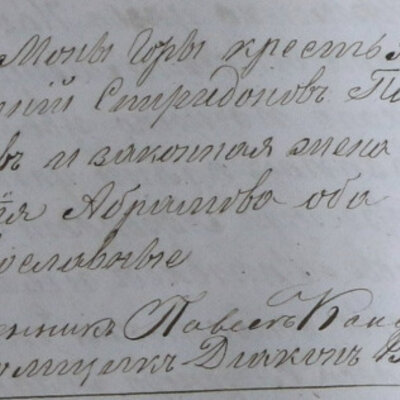 Моны Горы кресть
тий Спиридоновъ По
въ и законная жена
ия Абрамова оба
ославные
енникъ Павелъ Канд
омщикъ Диаконъ В